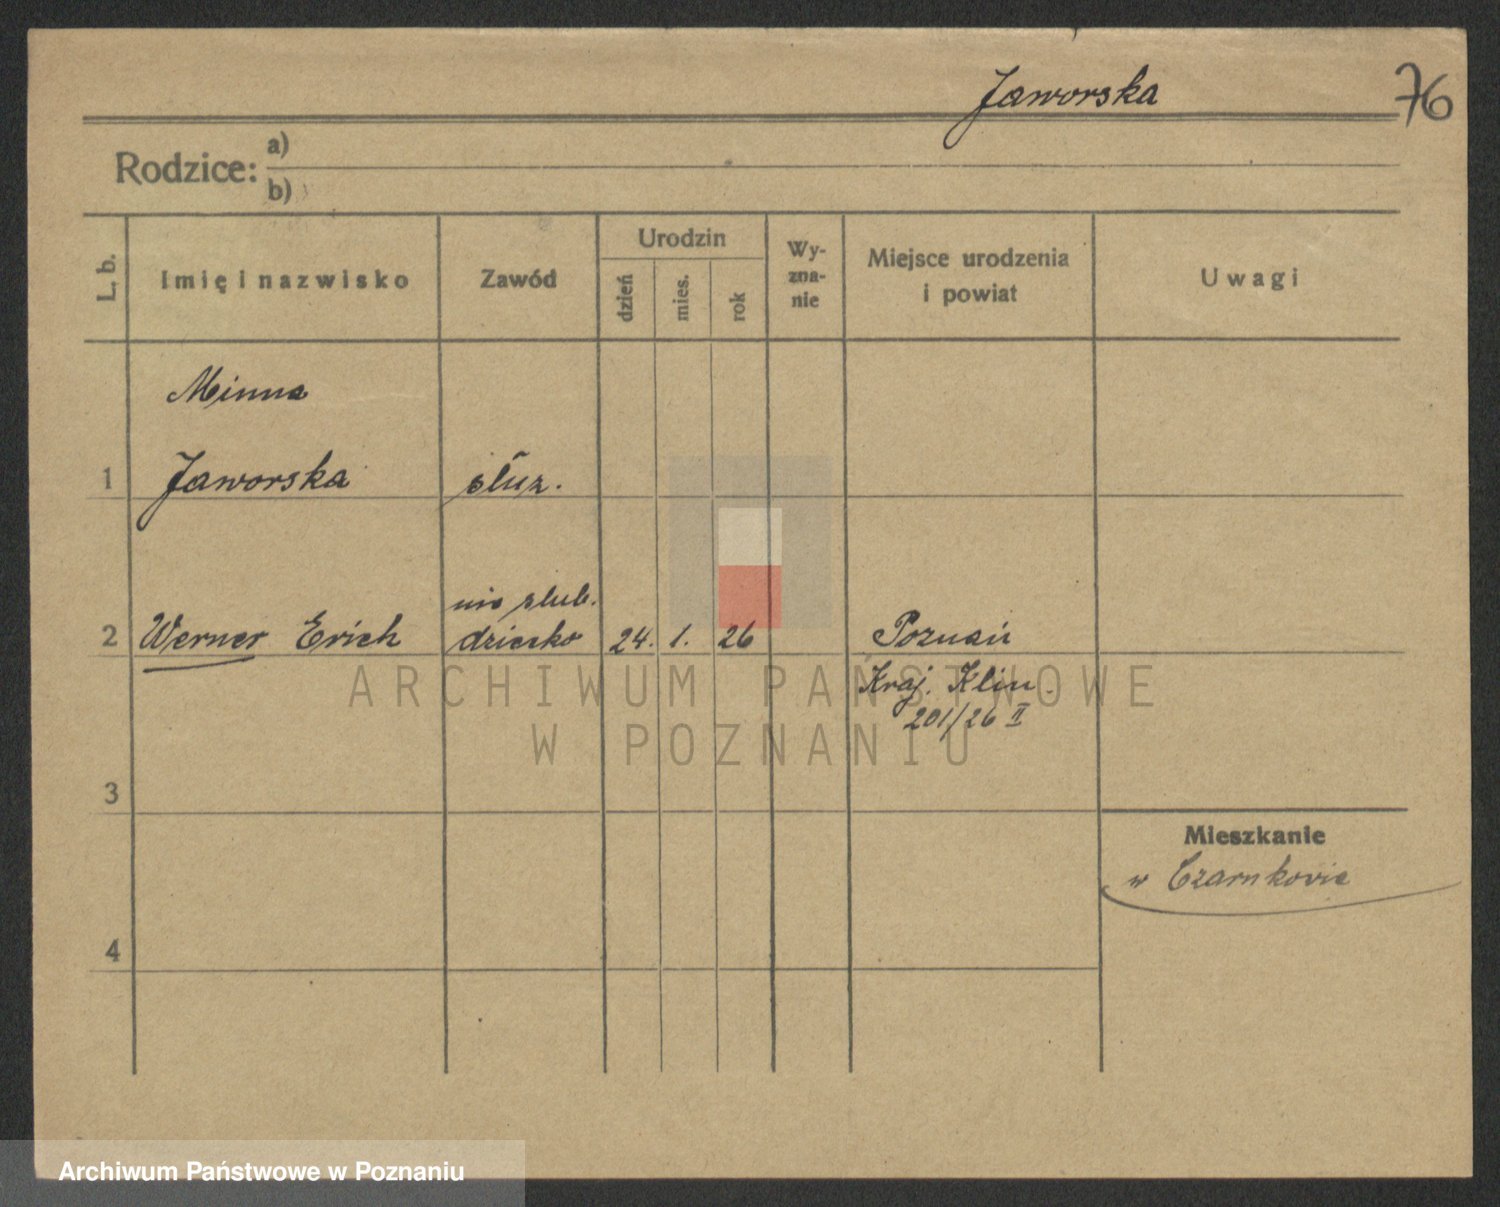 Jaworska
76
Rodzice: a)
b)
L. b.
Imię i nazwisko
Zawód
Urodzin
dzień
mies.
rok
Wy-
zna-
nie
Miejsce urodzenia
i powiat
Uwagi
Minna
1 Jaworska służ.
nie ślub.
2 Werner Erich dziecko 24. 1. 26 Poznań
Kraj. Klin.
201/26 II
3
Mieszkanie
w Czarnkowie
4
ARCHIWUM PAŃSTWOWE
W POZNANIU
Archiwum Państwowe w Poznaniu